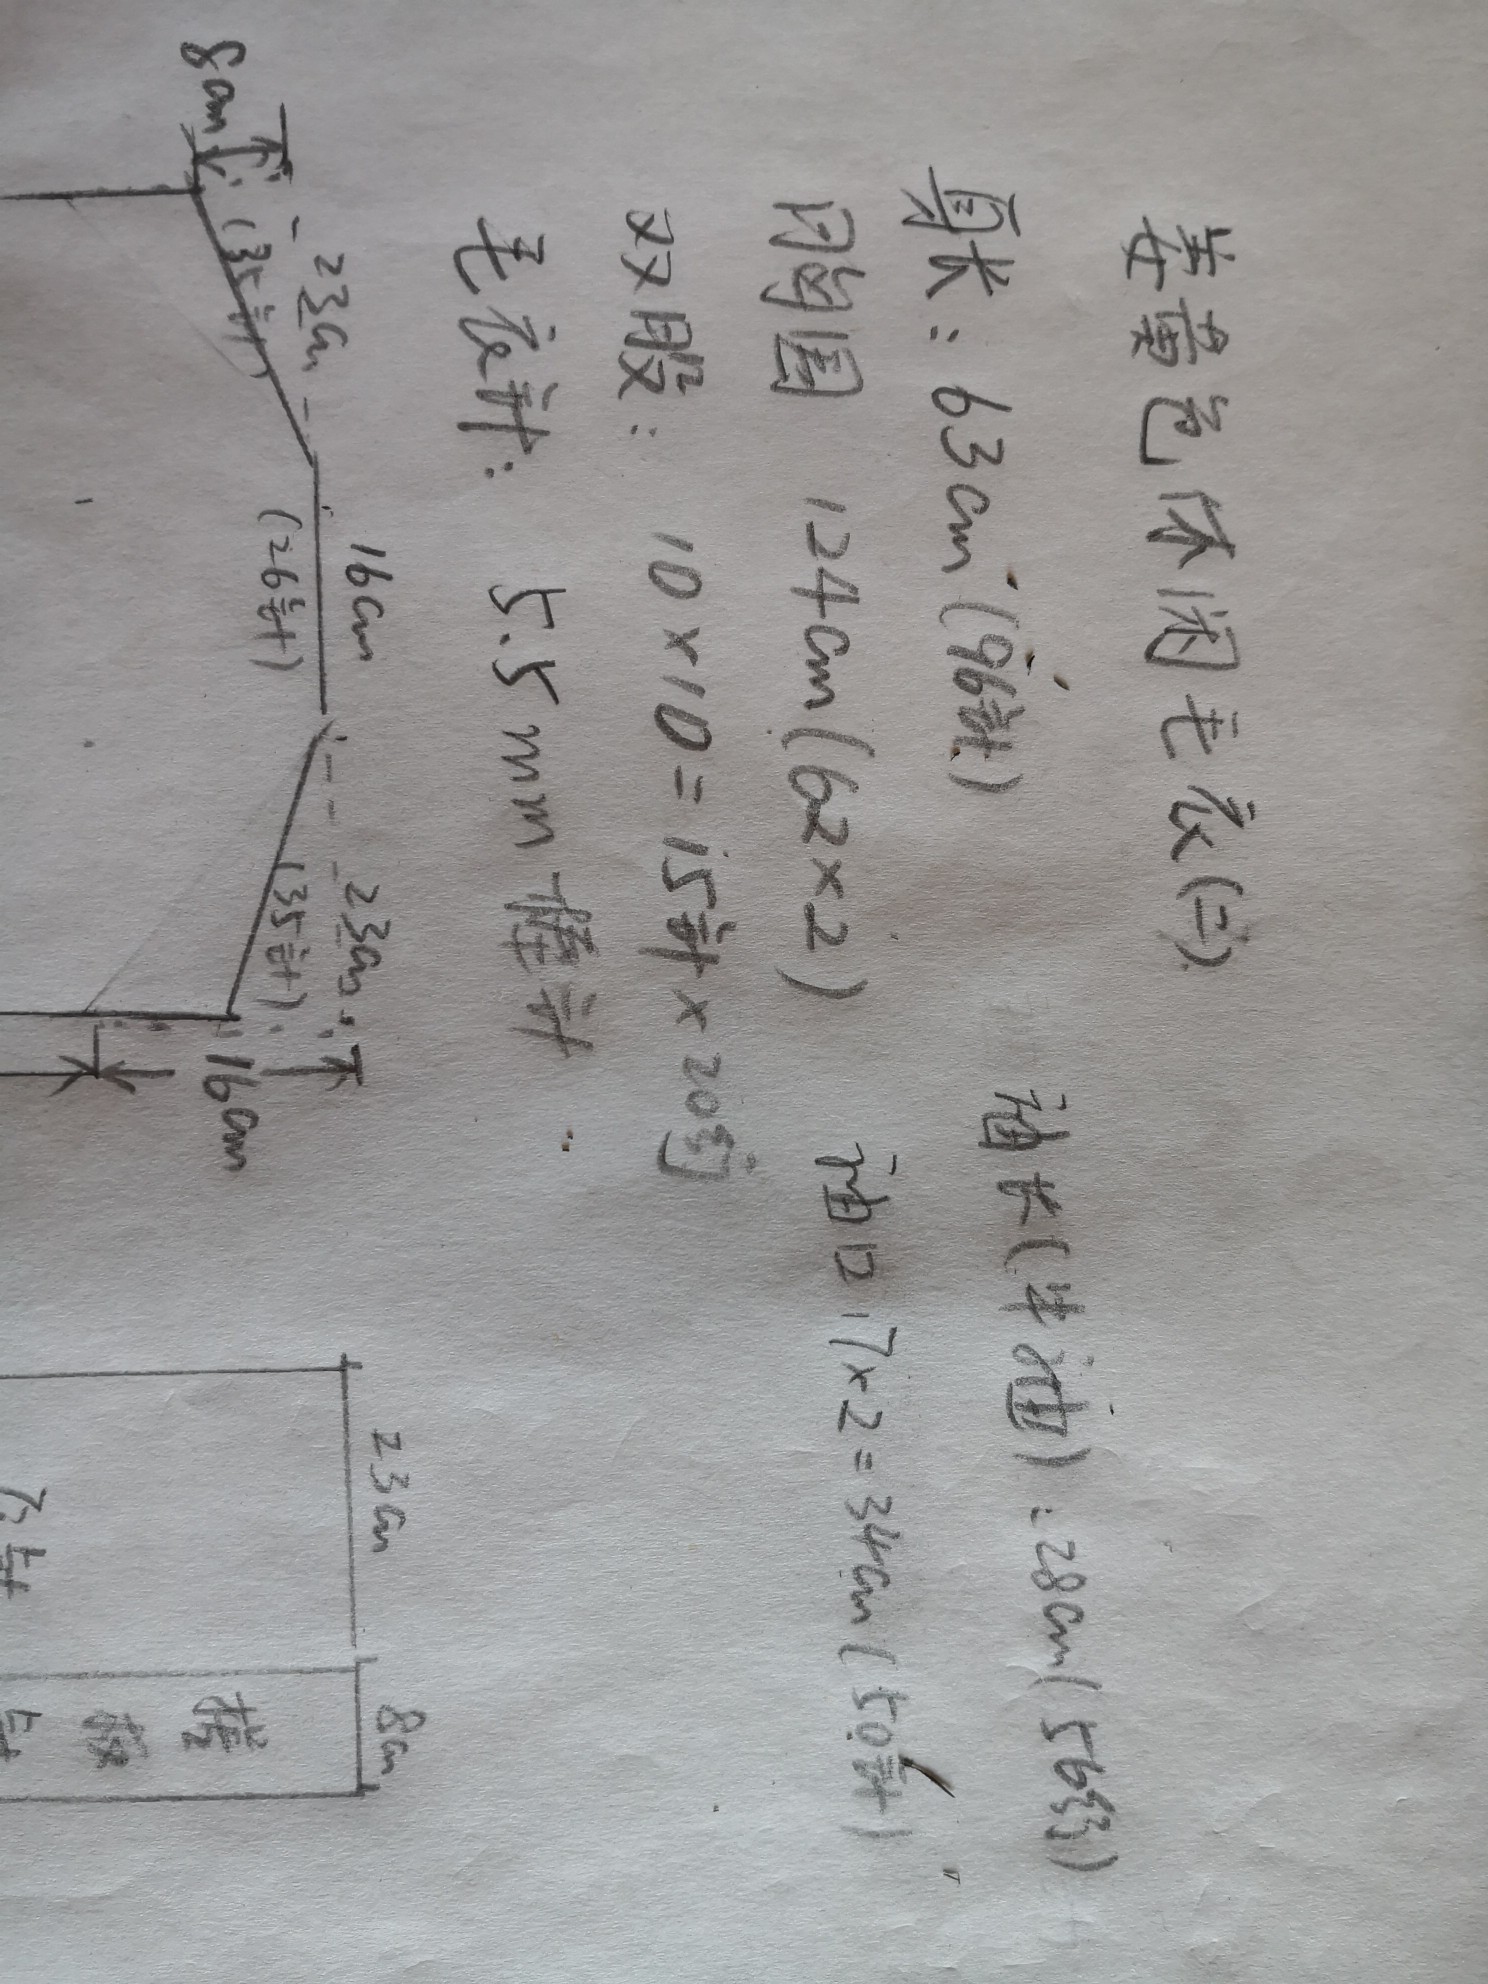 姜黄色休闲毛衣(二)
身长:63cm(96针) 袖长(半袖):28cm(56行)
胸围 124cm(62×2) 袖口 17×2=34cm(50针)
双股: 10×10=15针×20行
毛衣针: 5.5mm棒针
23cm 16cm 23cm 23cm 8cm
8cm (35针) (26针) (35针) 16cm